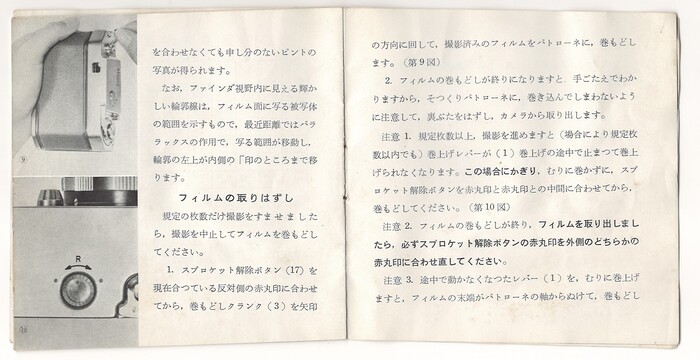 ⑨
R
10
を合わせなくても申し分のないピントの
写真が得られます。
なお、ファインダ視野内に見える輝か
しい輪郭線は，フィルム面に写る被写体
の範囲を示すもので，最近距離ではパラ
ラックスの作用で，写る範囲が移動し，
輪郭の左上が内側の「印のところまで移
ります。
フィルムの取りはずし
規定の枚数だけ撮影をすませました
ら，撮影を中止してフィルムを巻もどし
てください。
1. スプロケット解除ボタン（17）を
現在合つている反対側の赤丸印に合わせ
てから，巻もどしクランク（3）を矢印
の方向に回して，撮影済みのフィルムをパトローネに，巻もどし
ます。（第9図）
2. フィルムの巻もどしが終りになりますと 手ごたえでわか
りますから，そつくりパトローネに，巻き込んでしまわないよう
に注意して，裏ぶたをはずし，カメラから取り出します。
注意 1. 規定枚数以上，撮影を進めますと（場合により規定枚
数以内でも）巻上げレバーが（1）巻上げの途中で止まつて巻上
げられなくなります。この場合にかぎり，むりに巻かずに，スプ
ロケット解除ボタンを赤丸印と赤丸印との中間に合わせてから，
巻もどしてください。（第10図）
注意 2. フィルムの巻もどしが終り，フィルムを取り出しまし
たら，必ずスプロケット解除ボタンの赤丸印を外側のどちらかの
赤丸印に合わせ直してください。
注意 3. 途中で動かなくなつたレバー（1）を，むりに巻上げ
ますと，フィルムの末端がパトローネの軸からぬけて，巻もどし